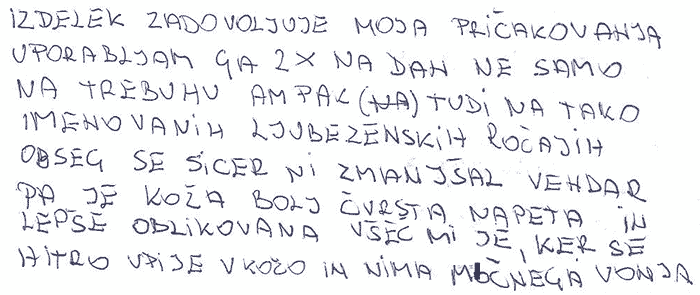 IZDELEK ZADOVOLJUJE MOJA PRIČAKOVANJA
UPORABLJAM GA 2X NA DAN NE SAMO
NA TREBUHU AMPAK (NA) TUDI NA TAKO
IMENOVANIH LJUBEZENSKIH ROČAJIH
OBSEG SE SICER NI ZMANJŠAL VEHDAR
PA JE KOŽA BOLJ ČVRSTA, NAPETA IN
LEPŠE OBLIKOVANA VŠEČ MI JE, KER SE
HITRO VPIJE V KOŽO IN NIMA MOČNEGA VONJA